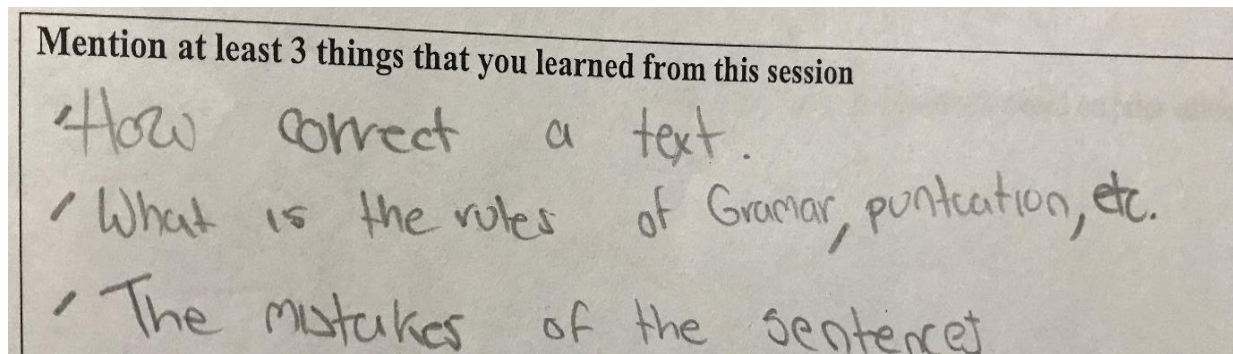 Mention at least 3 things that you learned from this session
How correct a text.
What is the rules of Gramar, puntcation, etc.
The mistakes of the sentences